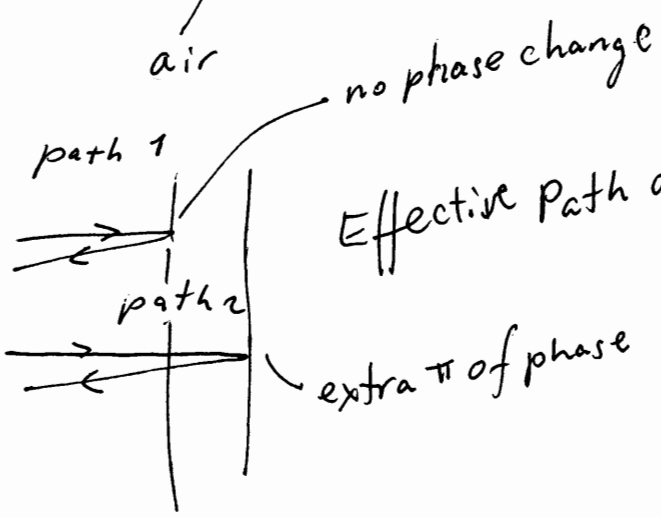 air
no phase change
path 1
Effective Path
path 2
extra π of phase